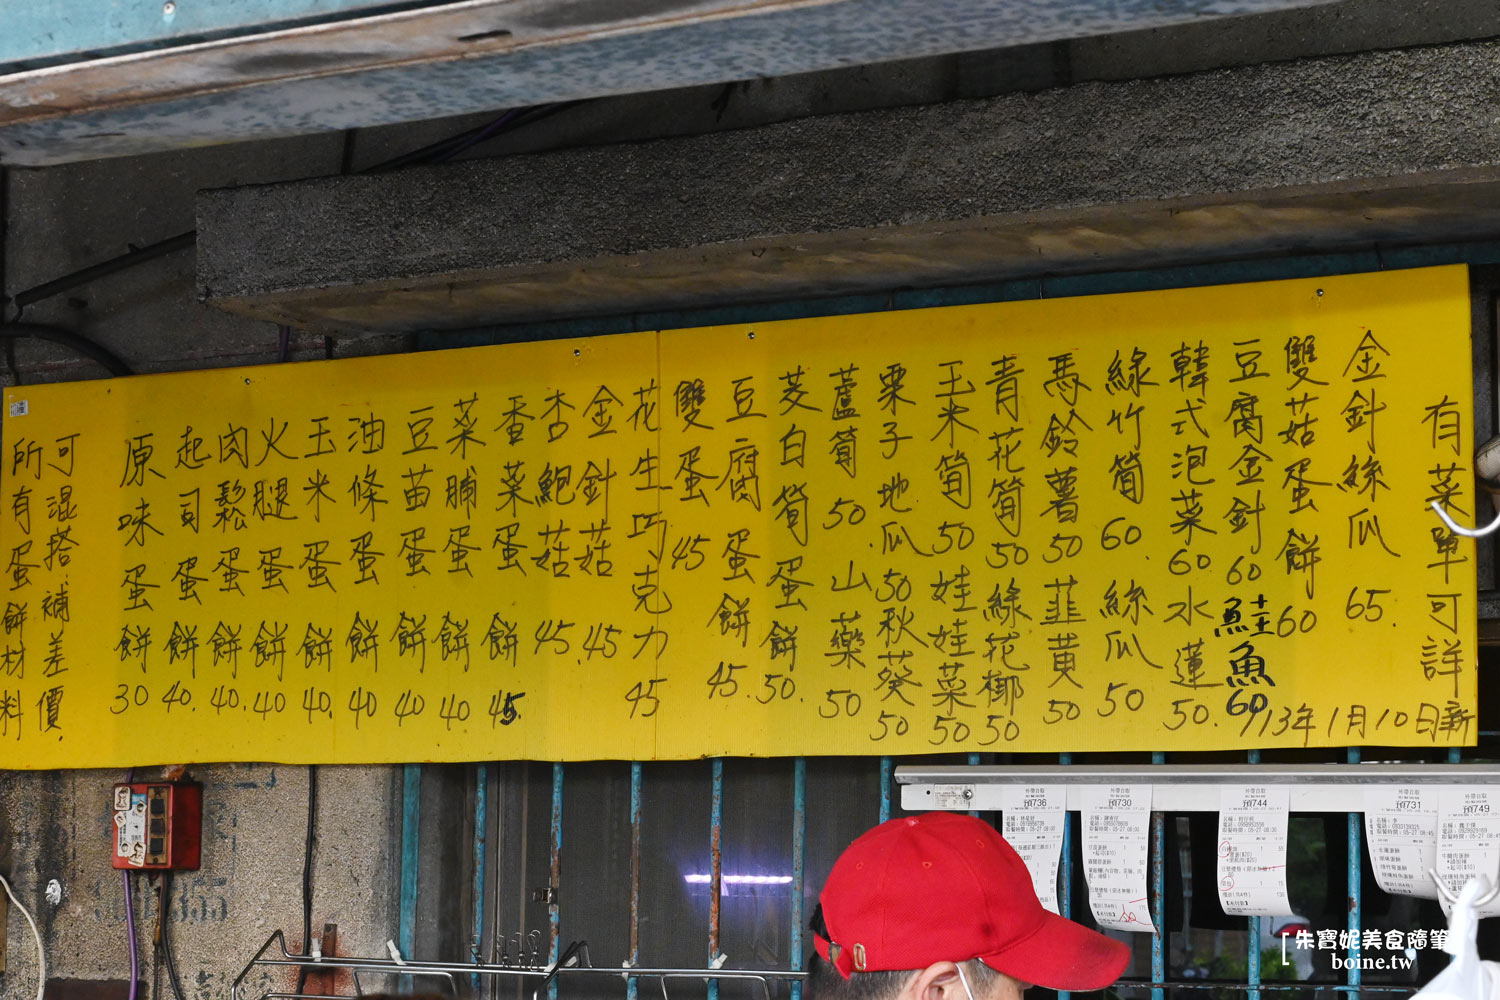 有菜單可詳
金針絲瓜 65.
雙菇蛋餅60
豆腐金針60
鮭魚60
韓式泡菜60
水蓮50.
綠竹筍60.
絲瓜50
馬鈴薯50
韮黄50
青花筍50
綠花椰50
玉米筍50
娃娃菜50
栗子地瓜50
秋葵50
蘆筍50
山藥50
茭白筍蛋餅50.
豆腐蛋餅45.
雙蛋45
花生巧克力45
金針菇45
杏鮑菇45.
香菜蛋餅45.
菜脯蛋餅40
豆苗蛋餅40
油條蛋餅40
玉米蛋餅40.
火腿蛋餅40
肉鬆蛋餅40.
起司蛋餅40.
原味蛋餅30
可混搭.補差價.
所有蛋餅材料
113年1月10日新
預736
預730
預744
預731
預749
朱寶妮美食隨筆
boine.tw